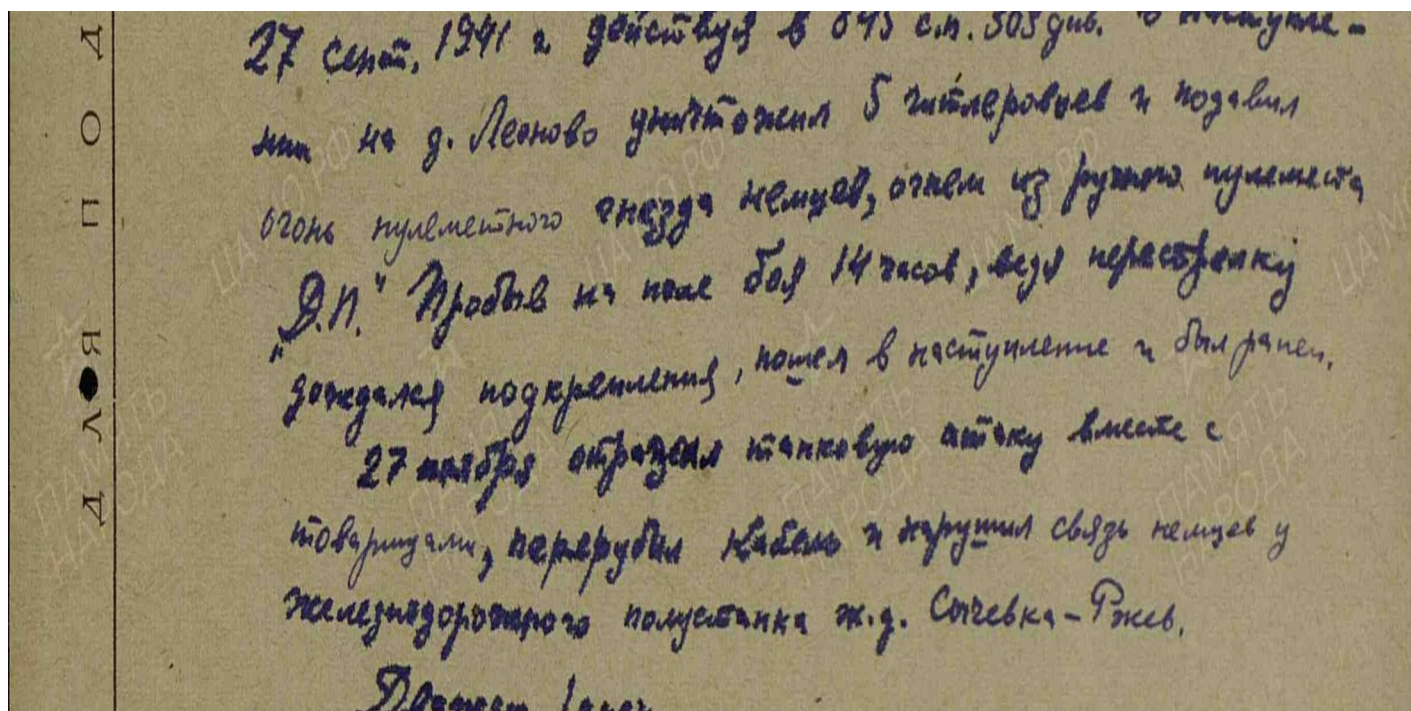 27 сент. 1941 г. действуя в 845 с.п. 303 див. в наступле-
нии на д. Леоново уничтожил 5 гитлеровцев и подавил
огонь пулеметного гнезда немцев, огнем из ручного пулемета
"Д.П." Пробыв на поле боя 14 часов, ведя перестрелку
дождался подкрепления, пошел в наступление и был ранен.
27 ноября отразил танковую атаку вместе с
товарищами, перерубил кабель и нарушил связь немцев у
железнодорожного полустанка ж.д. Сычевка-Ржев.
Дважды
ДЛЯ ПОД
ЦАМО РФ
ЦАМО РФ
ЦАМО РФ
ПАМЯТЬ НАРОДА
ПАМЯТЬ НАРОДА
ПАМЯТЬ НАРОДА
ПАМЯТЬ НАРОДА